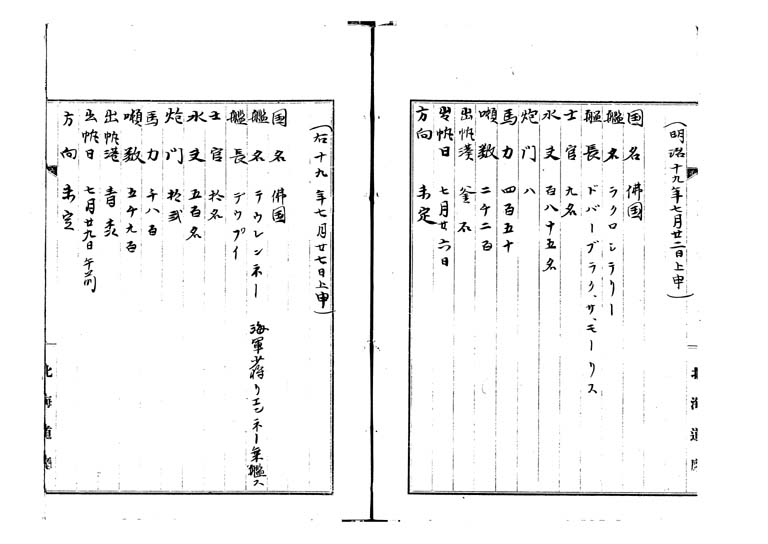 (明治十九年七月廿二日上申)
国名 佛国
艦名 ラクロシテリー
艦長 ドバーブラク、サ、モーリス
士官 九名
水夫 百八十五名
炮門 八
馬力 四百五十
噸数 二千二百
出帆港 釜石
出帆日 七月廿六日
方向 未定
北海道庁
(右十九年七月廿七日上申)
国名 佛国
艦名 テウレンネー 海軍少将リエンネー乗艦ス
艦長 デウプイ
士官 拾名
水夫 五百名
炮門 拾弐
馬力 千八百
噸数 五千九百
出帆港 青森
出帆日 七月廿九日午前
方向 未定
北海道廳